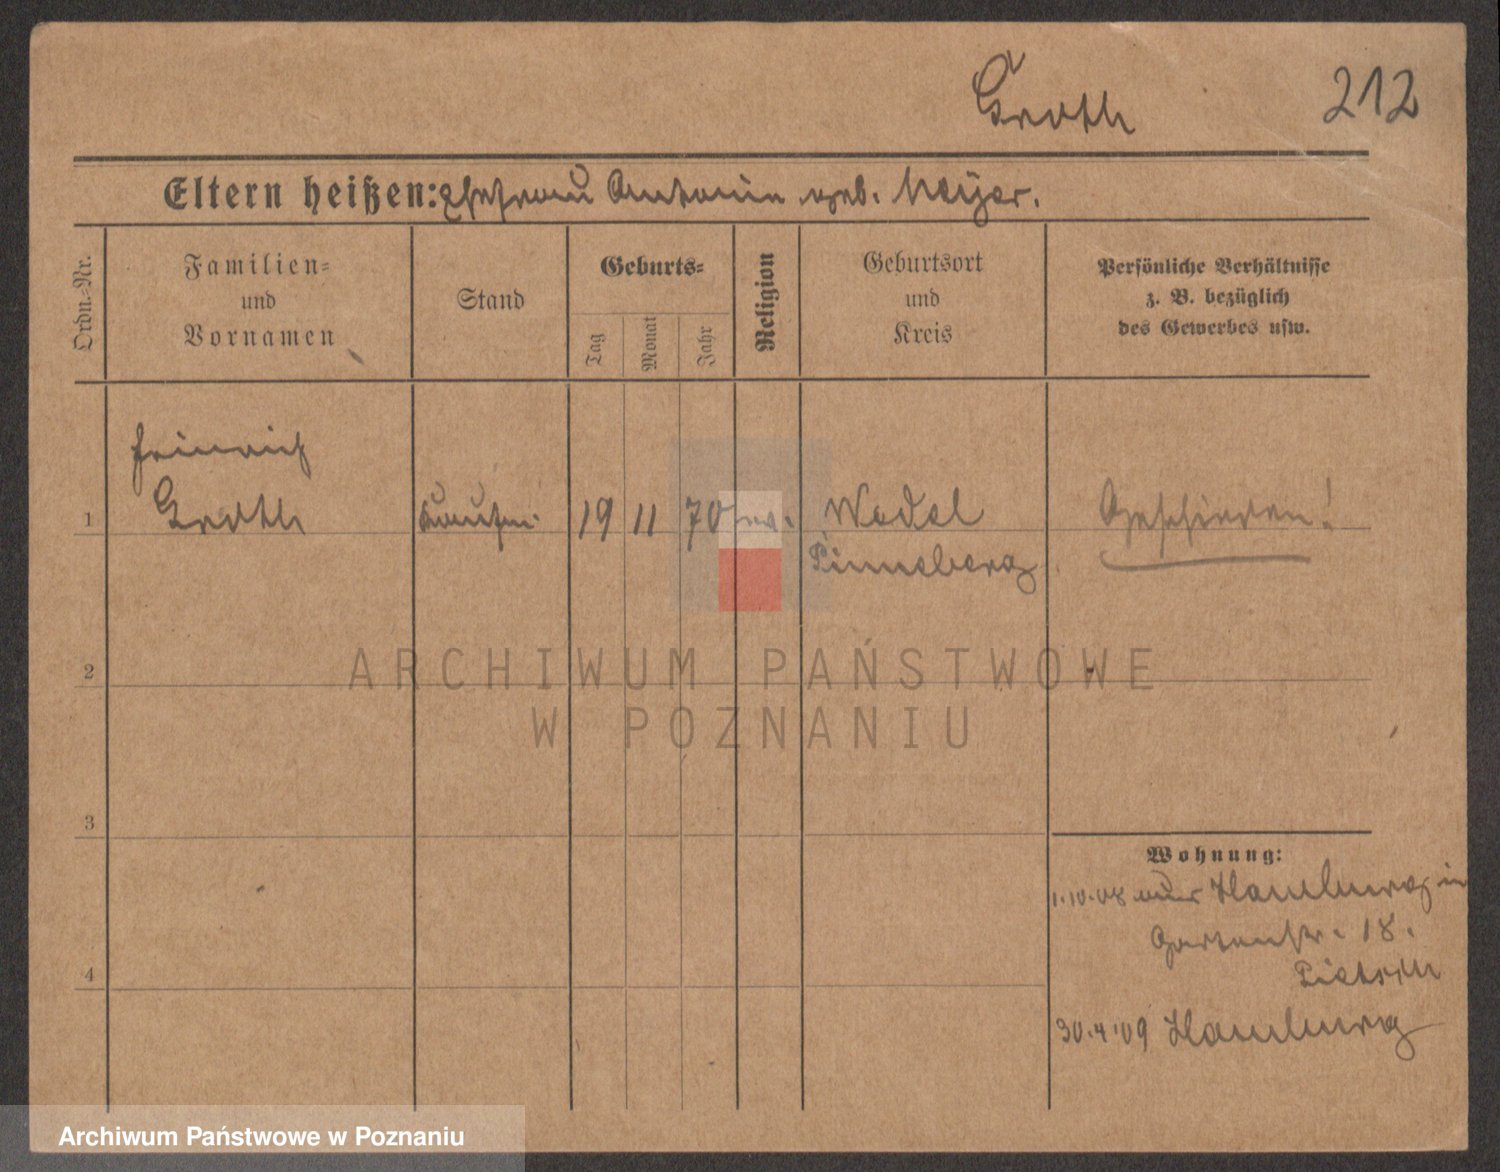 Groth
212
Eltern heißen: Ehefrau Antonie geb. Meyer.
Ordn.-Nr.
Familien-
und
Vornamen
Stand
Geburts-
Tag
Monat
Jahr
Religion
Geburtsort
und
Kreis
Persönliche Verhältnisse
z. B. bezüglich
des Gewerbes usw.
Heinrich
1 Groth Kaufm. 19 11 70 ev. Wedel Geschieden!
Pinneberg
2
3
4
Wohnung:
1.10.08 aus Hamburg in
Gartenstr. 18.
30.4.09 Hamburg
ARCHIWUM PAŃSTWOWE
W POZNANIU
Archiwum Państwowe w Poznaniu